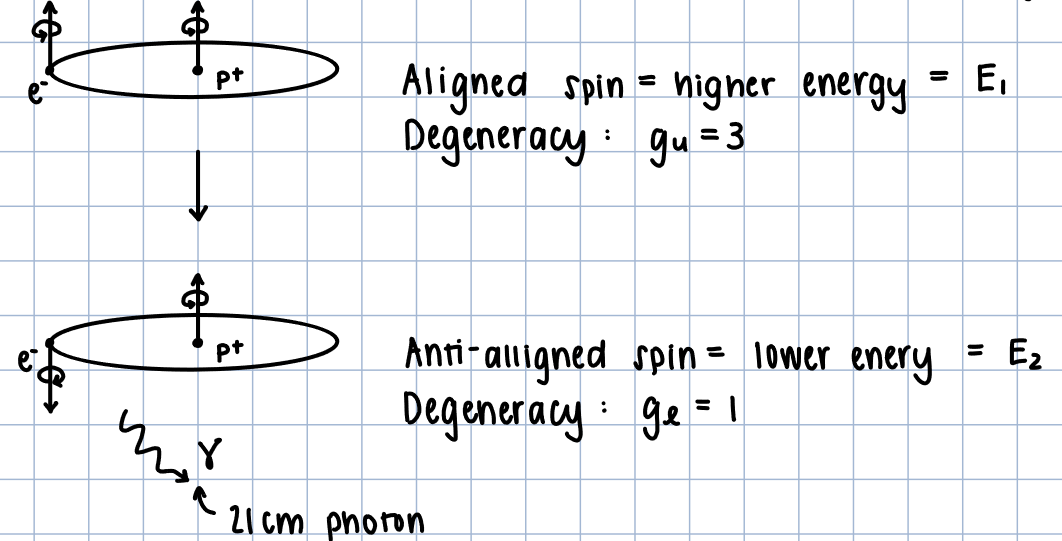 e⁻
p⁺
Aligned spin = higher energy = E₁
Degeneracy : gᵤ = 3
e⁻
p⁺
Anti-alligned spin = lower enery = E₂
Degeneracy : gₑ = 1
γ
21cm photon